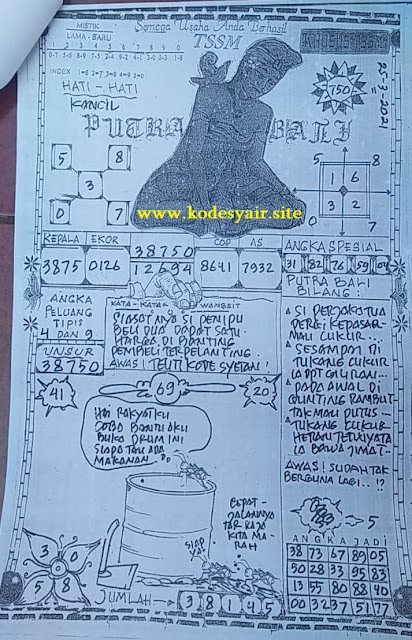 Semoga Usaha Anda Berhasil
TSSM
KHUSUS TSSM
MISTIK
LAMA - BARU
1 2 3 4 5 6 7 8 9 0
INDEX 1=6 2=7 3=8 4=9 5=0
HATI - HATI
KANCIL
750
25-3-2021
PUTRA BALI
5 8
3
0 7
5 8
1 6
3 2
0 7
www.kodesyair.site
KEPALA EKOR
3875 0126
38750
12694
COP AS
8641 7932
ANGKA SPESIAL
31 82 76 59 04
PUTRA BALI
BILANG :
ANGKA
PELUANG
TIPIS
4 DAN 9
UNSUR
38750
KATA - KATA - WANGSIT
SIASATNYA SI PENIPU
BELI DUA DAPAT SATU
HARGA DI BANTING
PEMBELI TERPELANTING.
AWAS! TELITI KODE SYETAN!
SI PERJAKA TUA
PERGI KEPASAR
MAU CUKUR...
SESAMPAI DI
TUKANG CUKUR
PADA AWAL DI
GUNTING RAMBUT
TAK MAU PUTUS...
TUKANG CUKUR
HERAN TERNYATA
IA BAWA JIMAT
AWAS! SUDAH TAK
BERGUNA LAGI..!?
41
69
20
HAI RAKYATKU
COBA BANTU AKU
BUKA DRUM INI
SIAPA TAU ADA
MAKANAN..
CEPAT -
JALANNYA
TAR RAJA
KITA MA-
RAH
SIAP
5
ANGKA JADI
38 73 67 89 05
50 28 33 95 83
13 55 80 88 40
00 32 37 51 77
3 0
5 8
JUMLAH
3 8 1 4 5